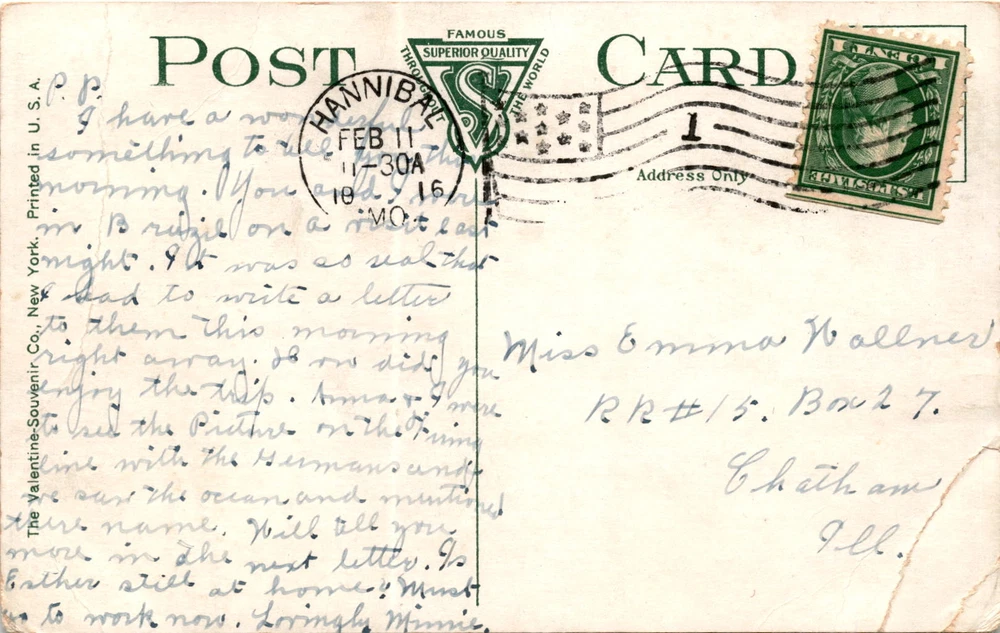 POST CARD
FAMOUS
THROUGHOUT THE WORLD
SUPERIOR QUALITY
VS
HANNIBAL
FEB 11
11-30A
19 16
MO.
1
Address Only
ONE CENT 1
U.S. POSTAGE
The Valentine-Souvenir Co., New York. Printed in U. S. A.
P. P.
I have a wonderful
something to tell you this
morning. You and I were
in Brazil on a visit last
night. It was so real that
I had to write a letter
to them this morning
right away. How did you
enjoy the trip. Anna & I were
to see the Picture on the Firing
line with the Germans and
we saw the ocean and mentioned
there name. Will tell you
more in the next letter. Is
Esther still at home? Must
go to work now. Lovingly Minnie.
Miss Emma Wallner
RR#15. Box 27.
Chatham
Ill.